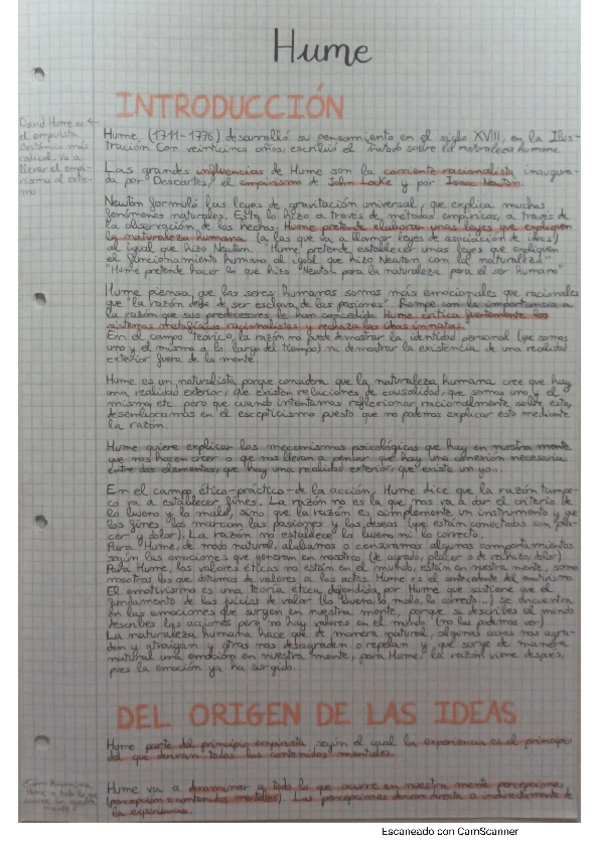 Hume
INTRODUCCIÓN
David Hume es
el empirista
británico más
radical. Va a
llevar el empi-
rismo al extre-
mo
Hume, (1711-1776) desarrolló su pensamiento en el siglo XVIII, en la Ilus-
tración. Con veinticinco años, escribió el Tratado sobre la naturaleza humana.
Las grandes influencias de Hume son la corriente racionalista inaugura-
da por Descartes, el empirismo de John Locke y por Isaac Newton.
Newton formuló las leyes de gravitación universal, que explica muchos
fenómenos naturales. Esto lo hizo a través de métodos empíricos, a través de
la observación de los hechos. Hume pretende elaborar unas leyes que expliquen
la naturaleza humana (a las que va a llamar leyes de asociación de ideas)
al igual que hizo Newton. "Hume pretende establecer unas leyes que expliquen
el funcionamiento humano al igual que hizo Newton con la naturaleza"
"Hume pretende hacer lo que hizo Newton para la naturaleza para el ser humano"
Hume piensa que los seres humanos somos más emocionales que racionales
que "la razón debe de ser esclava de las pasiones". Rompe con la importancia a
la razón que sus predecesores le han concedido. Hume critica fuertemente los
sistemas metafísicos racionalistas y rechaza las ideas innatas.
En el campo teórico, la razón no puede demostrar la identidad personal (que somos
uno y el mismo a lo largo del tiempo) ni demostrar la existencia de una realidad
exterior fuera de la mente.
Hume es un naturalista porque considera que la naturaleza humana cree que hay
una realidad exterior, que existen relaciones de causalidad, que somos uno y el
mismo, etc. pero que cuando intentamos reflexionar racionalmente sobre esto,
desembocamos en el escepticismo puesto que no podemos explicar esto mediante
la razón.
Hume quiere explicar los mecanismos psicológicos que hay en nuestra mente
que nos hacen creer o que nos llevan a pensar que hay una conexión necesaria
entre dos elementos, que hay una realidad exterior, que existe un yo...
En el campo ético-práctico-de la acción, Hume dice que la razón tampo-
co va a establecer fines. La razón no es la que nos va a dar el criterio de
lo bueno y lo malo, sino que la razón es simplemente un instrumento y que
los fines los marcan las pasiones y los deseos (que están conectados con pla-
cer y dolor). La razón no establece lo bueno ni lo correcto.
Para Hume, de modo natural, alabamos o censuramos algunos comportamientos
según las emociones que generan en nosotros (de agrado, placer o de rechazo, dolor)
Para Hume, los valores éticos no están en el mundo, están en nuestra mente, somos
nosotros los que dotamos de valores a los actos. Hume es el antecedente del emotivismo.
El emotivismo es una teoría ética defendida por Hume que sostiene que el
fundamento de los juicios de valor (lo bueno, lo malo, lo correcto...) se encuentra
en las emociones que surgen en nuestra mente, porque si describes el mundo
describes las acciones pero no hay valores en el mundo (no los podemos ver)
La naturaleza humana hace que de manera natural, algunas cosas nos agra-
den y atraigan y otras nos desagraden o repelan y, que surge de manera
natural una emoción en nuestra mente, para Hume la razón viene después,
pues la emoción ya ha surgido.
DEL ORIGEN DE LAS IDEAS
Hume parte del principio empirista según el qual la experiencia es el principio
del que derivan todos los contenidos mentales.
¿Cómo denomina
Hume a todo lo que
ocurre en nuestra
mente?
Hume va a denominar a todo lo que ocurre en nuestra mente percepciones
(percepción = contenidos mentales). Las percepciones derivan directa o indirectamente de
la experiencia.
Escaneado con CamScanner